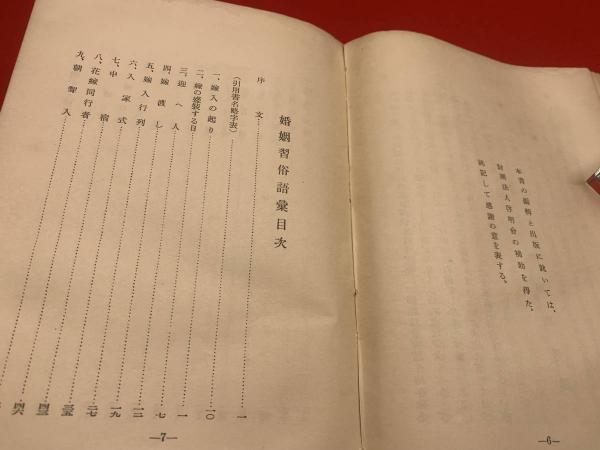 本書の編輯と出版に就いては、
財團法人啓明會の補助を得た。
銘記して感謝の意を表する。
—6—
婚姻習俗語彙目次
序文……一
(引用書名略字表)……一〇
一、嫁入の起り……一
二、嫁の盛装する日……七
三、迎へ人……一二
四、嫁渡し……一九
五、嫁入行列……二七
六、入家式
七、中宿……四三
八、花嫁同行者……四六
九、朝聟入
—7—